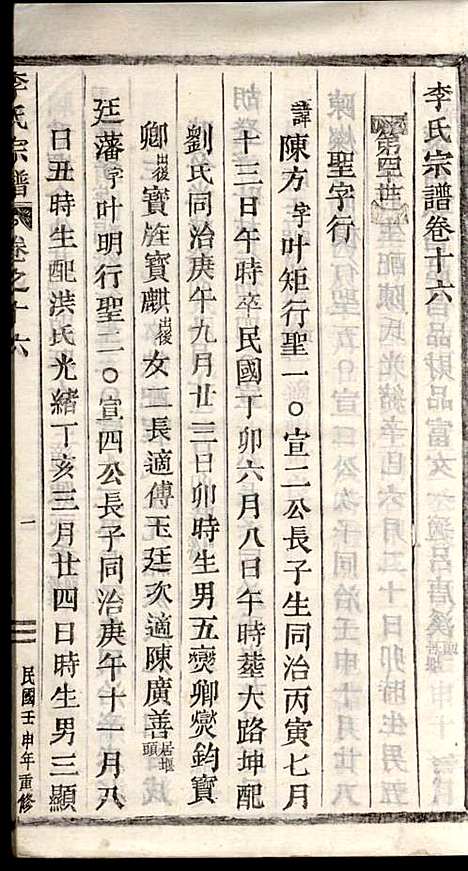 李氏宗譜卷十六
第四十世
聖字行
諱陳方字叶矩行聖一〇宣二公長子生同治丙寅七月
十三日午時卒民國丁卯六月八日午時塟大路坤配
劉氏同治庚午九月廿三日卯時生男五爕卿爕鈞寶
卿出後寶旌寶麒出後女二長適傅玉廷次適陳廣善居堰頭
廷藩字叶明行聖二〇宣四公長子同治庚午十一月八
日丑時生配洪氏光緒丁亥三月廿四日時生男三顯
李氏宗譜 卷之十六 一 民國壬申年重修